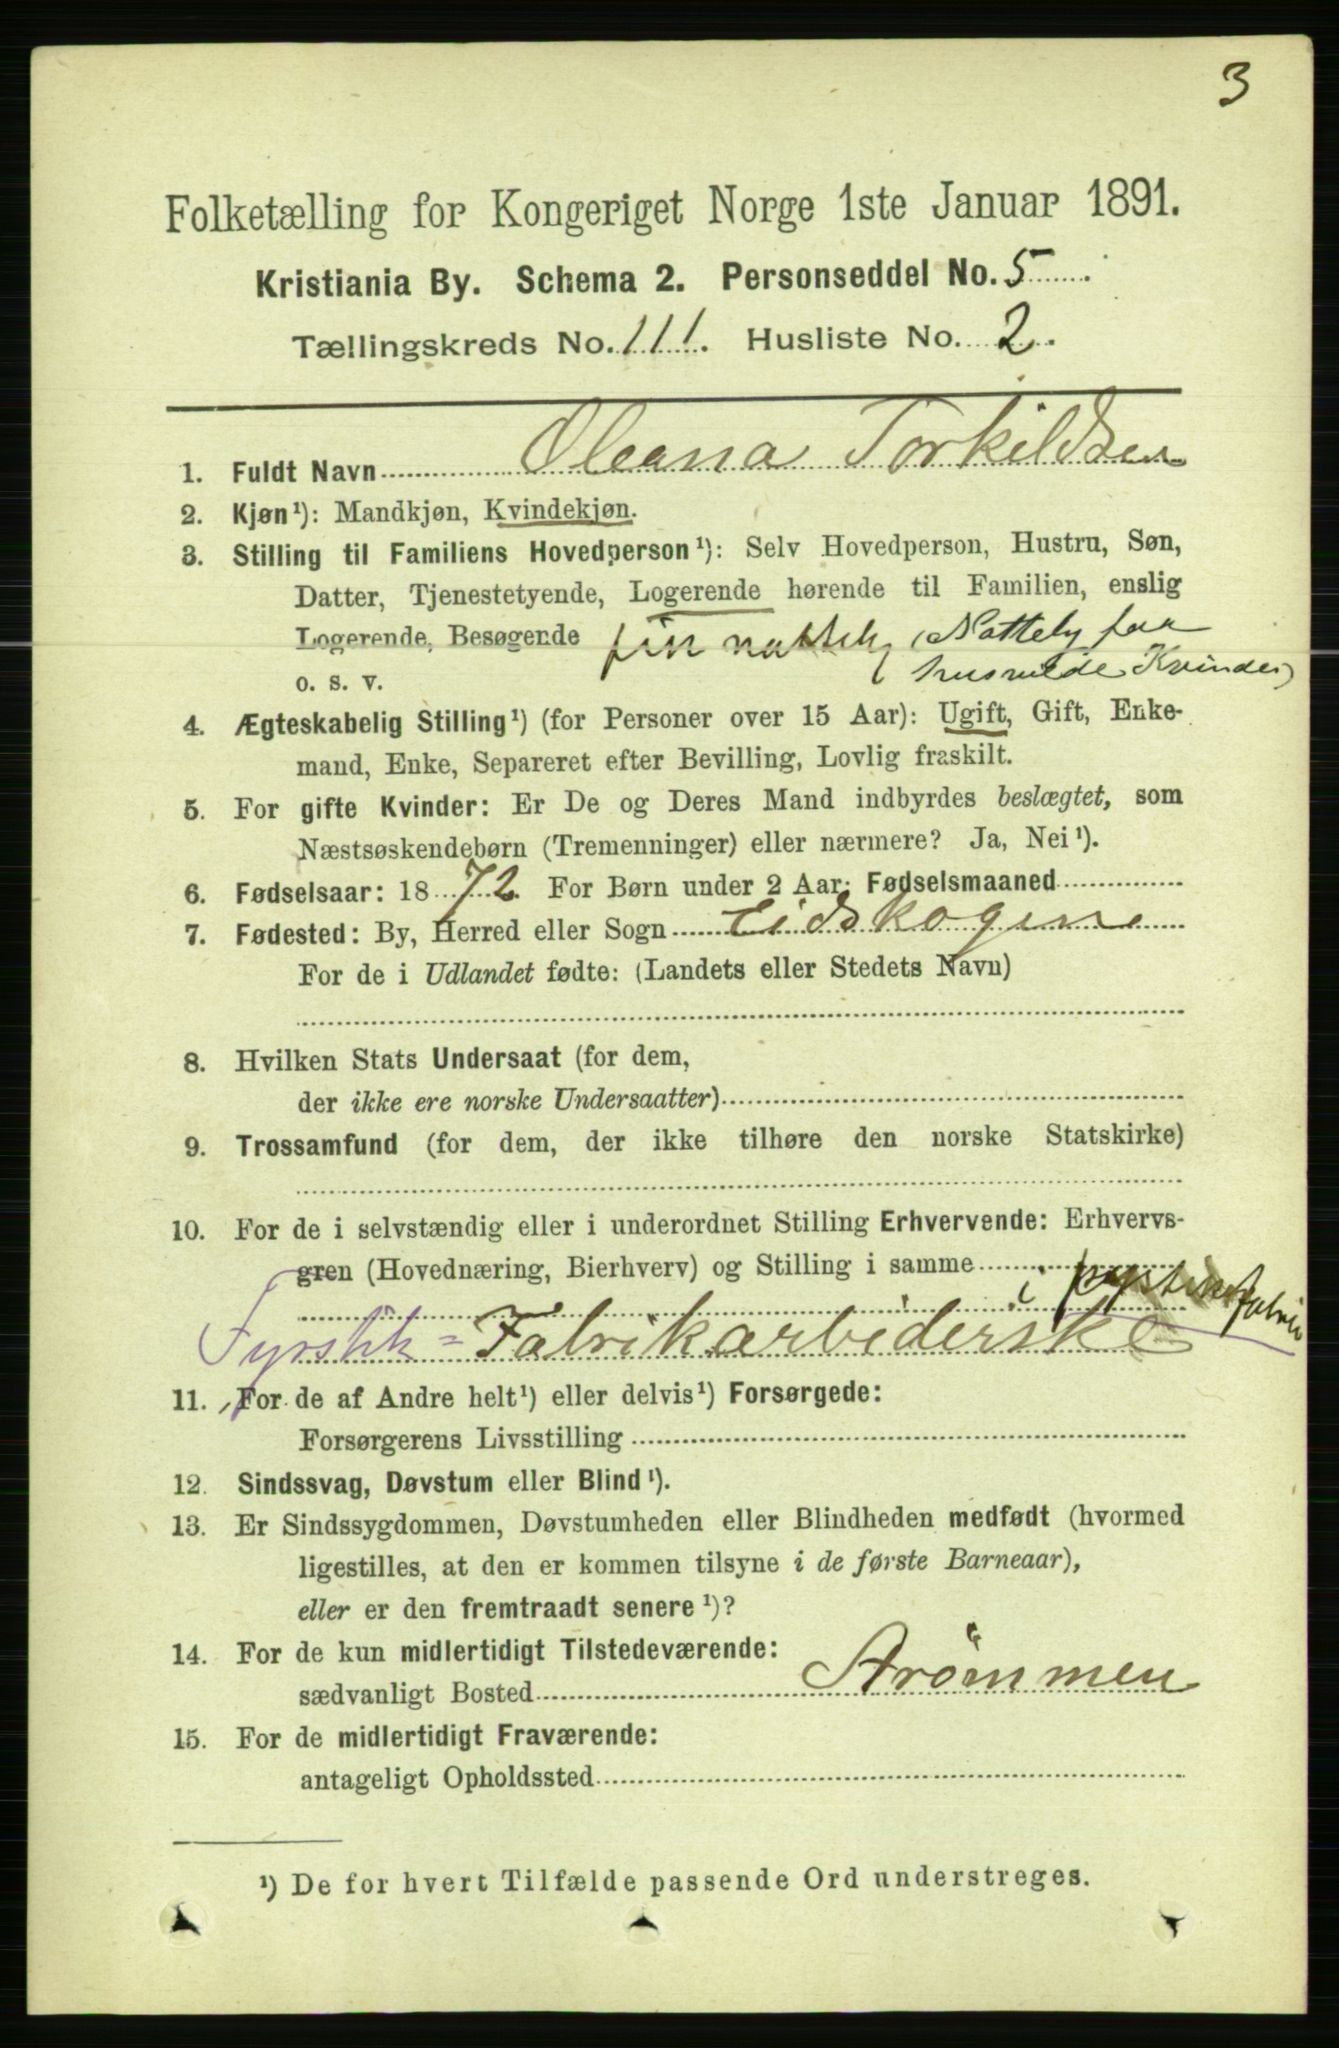 3
Folketælling for Kongeriget Norge 1ste Januar 1891.
Kristiania By. Schema 2. Personseddel No. 5
Tællingskreds No. 111. Husliste No. 2.
1. Fuldt Navn Oleana Torkildsen
2. Kjøn¹): Mandkjøn, Kvindekjøn.
3. Stilling til Familiens Hovedperson¹): Selv Hovedperson, Hustru, Søn,
Datter, Tjenestetyende, Logerende hørende til Familien, enslig
Logerende, Besøgende (Nattely faa
husvilde Kvinder)
o. s. v.
4. Ægteskabelig Stilling¹) (for Personer over 15 Aar): Ugift, Gift, Enke-
mand, Enke, Separeret efter Bevilling, Lovlig fraskilt.
5. For gifte Kvinder: Er De og Deres Mand indbyrdes beslægtet, som
Næstsøskendebørn (Tremenninger) eller nærmere? Ja, Nei¹).
6. Fødselsaar: 1872 For Børn under 2 Aar: Fødselsmaaned
7. Fødested: By, Herred eller Sogn Eidskogene
For de i Udlandet fødte: (Landets eller Stedets Navn)
8. Hvilken Stats Undersaat (for dem,
der ikke ere norske Undersaatter)
9. Trossamfund (for dem, der ikke tilhøre den norske Statskirke)
10. For de i selvstændig eller i underordnet Stilling Erhvervende: Erhvervs-
gren (Hovednæring, Bierhverv) og Stilling i samme
Fyrstik= Fabrikarbiderske
11. For de af Andre helt¹) eller delvis¹) Forsørgede:
Forsørgerens Livsstilling
12. Sindssvag, Døvstum eller Blind¹).
13. Er Sindssygdommen, Døvstumheden eller Blindheden medfødt (hvormed
ligestilles, at den er kommen tilsyne i de første Barneaar),
eller er den fremtraadt senere¹)?
14. For de kun midlertidigt Tilstedeværende:
sædvanligt Bosted Strømmen
15. For de midlertidigt Fraværende:
antageligt Opholdssted
¹) De for hvert Tilfælde passende Ord understreges.